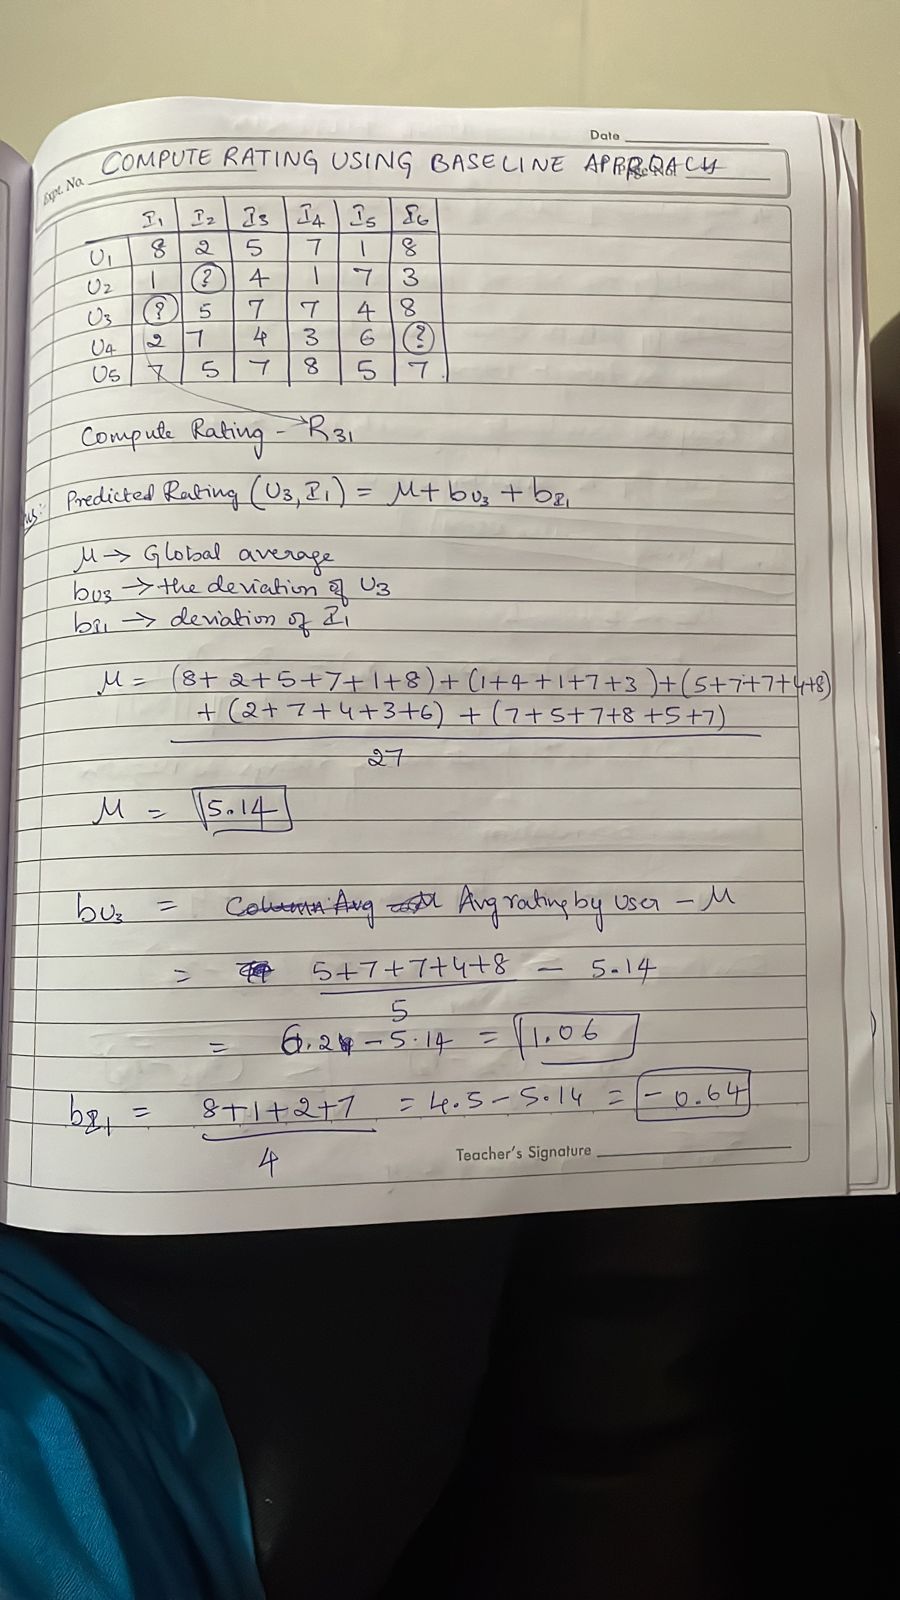 Date
Expt. No. COMPUTE RATING USING BASELINE APPROACH
I₁ I₂ I₃ I₄ I₅ I₆
U₁ 8 2 5 7 1 8
U₂ 1 ? 4 1 7 3
U₃ ? 5 7 7 4 8
U₄ 2 7 4 3 6 ?
U₅ 7 5 7 8 5 7
Compute Rating - R₃₁
Predicted Rating (U₃, I₁) = μ + bᵤ₃ + b_I₁
μ → Global average
bᵤ₃ → the deviation of U₃
b_I₁ → deviation of I₁
μ = (8+2+5+7+1+8)+(1+4+1+7+3)+(5+7+7+4+8)
+ (2+7+4+3+6) + (7+5+7+8+5+7)
27
μ = 5.14
bᵤ₃ = Column Avg Avg rating by user - μ
= 5+7+7+4+8 - 5.14
5
= 6.2 - 5.14 = 1.06
b_I₁ = 8+1+2+7 = 4.5 - 5.14 = -0.64
4
Teacher's Signature